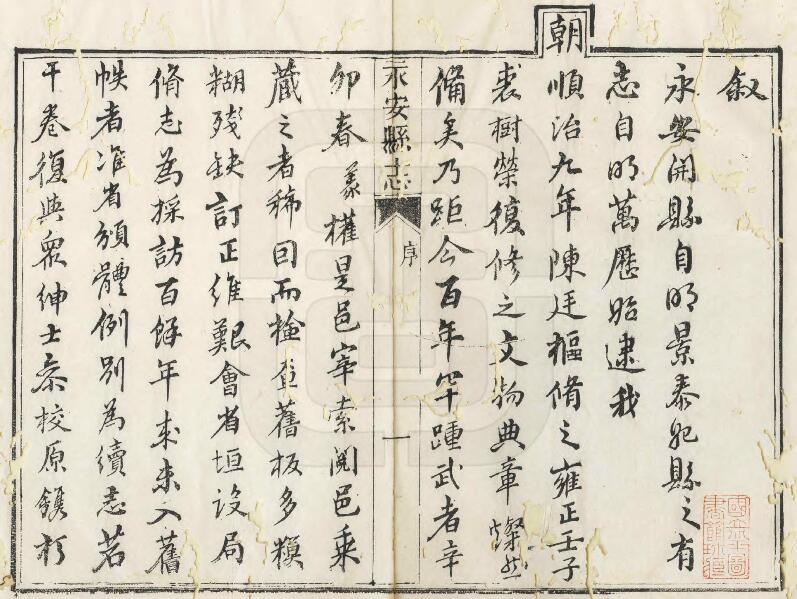 叙
永安開縣自明景泰縣之有
志自明萬歷始逮我
朝順治九年陳廷樞脩之雍正壬子
裘樹榮復修之文物典章燦然
備矣乃距今百年罕踵武者辛
永安縣志 序 一
卯春義權是邑宰索閱邑乘
藏之者稀回而檢查舊板多模
糊殘缺訂正維艱會省垣設局
脩志為採訪百餘年來未入舊
帙者准省頒體例別為續志若
干卷復與眾紳士叅校原鐫
國立北平圖
書館珍藏